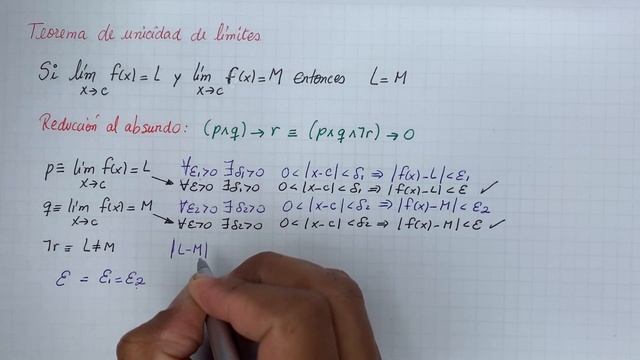 Teorema de unicidad de límites
Si lím f(x) = L y lím f(x) = M entonces L = M
x→c x→c
Reducción al absurdo: (p∧q) → r ≡ (p∧q∧¬r) → 0
p ≡ lím f(x) = L ∀ε₁>0 ∃δ₁>0 0<|x-c|<δ₁ ⇒ |f(x)-L|<ε₁
x→c ∀ε>0 ∃δ₁>0 0<|x-c|<δ₁ ⇒ |f(x)-L|<ε ✓
q ≡ lím f(x) = M ∀ε₂>0 ∃δ₂>0 0<|x-c|<δ₂ ⇒ |f(x)-M|<ε₂
x→c ∀ε>0 ∃δ₂>0 0<|x-c|<δ₂ ⇒ |f(x)-M|<ε ✓
¬r ≡ L≠M |L-M|
ε = ε₁ = ε₂